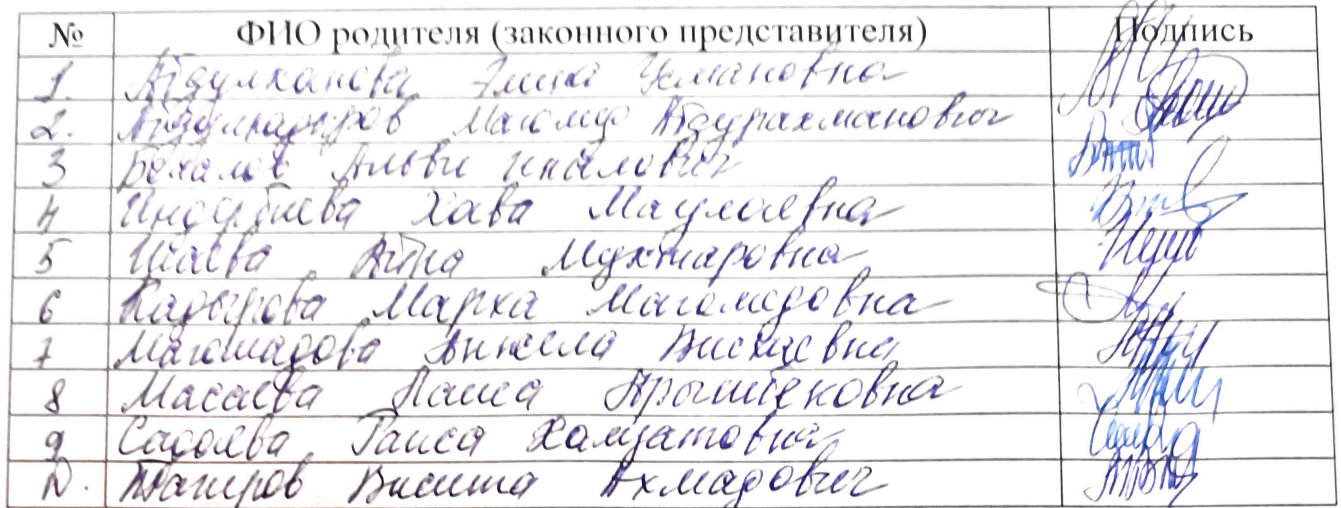 № ФИО родителя (законного представителя) Подпись
1. Абдулханова Элиза Усмановна
2. Абдулкадыров Магомед Абдурахманович
3 Бекалов Альви
4 Индербиева Хава Маулаевна
5 Исаева Мухтаровна
6 Кадырова Марха Магомедовна
7 Магомадова Анжела Висхаевна
8 Масаева Арышбековна
9 Садаева Раиса Хамзатовна
10. Тагиров Висита Ахмадович